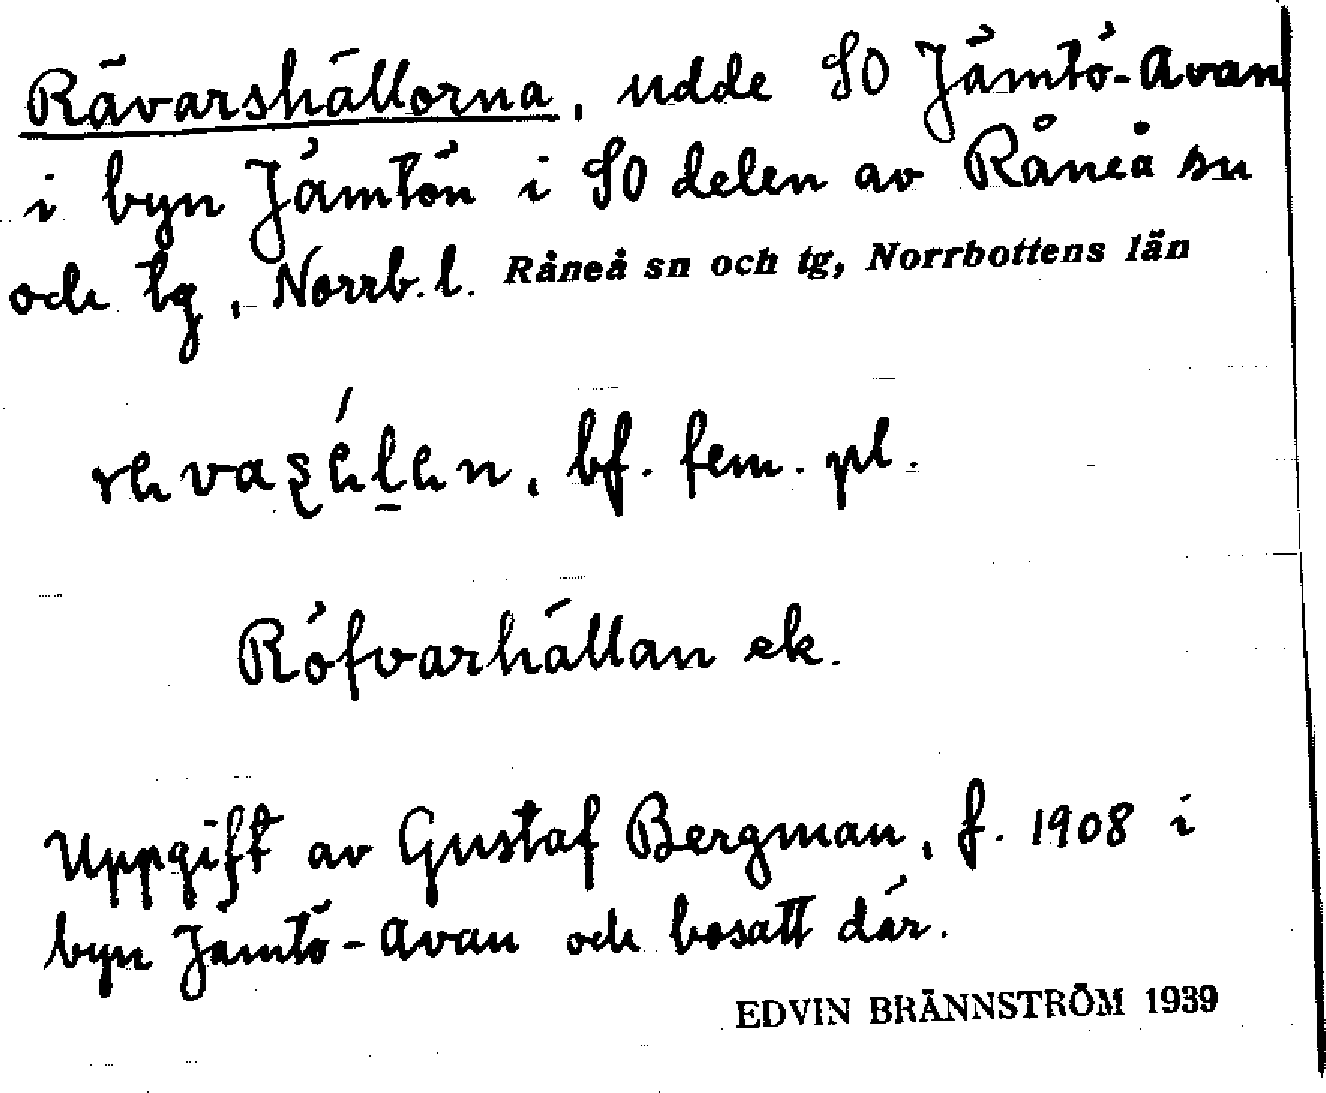 Rävarshällorna, udde SO Jämtö-Avan
i byn Jämtön i SO delen av Råneå sn
och tg, Norrb. l. Råneå sn och tg, Norrbottens län
bf. fem. pl.
Röfvarhällan ek.
Uppgift av Gustaf Bergman, f. 1908 i
byn Jämtö-Avan och bosatt där.
EDVIN BRÄNNSTRÖM 1939